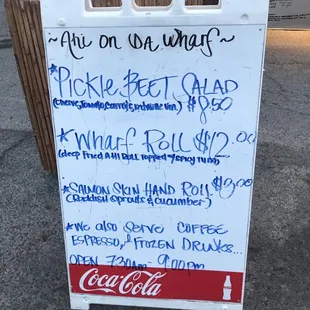 ~Ahi on DA Wharf~
*Pickle Beet Salad
$8.50
*Wharf Roll $12.00
(deep Fried Ahi Roll topped w/spicy tuna)
*Salmon Skin Hand Roll
(Raddish sprouts & cucumber)
*We also serve coffee
espresso, & frozen drinks...
open 7:30am - 9:00pm
Coca-Cola